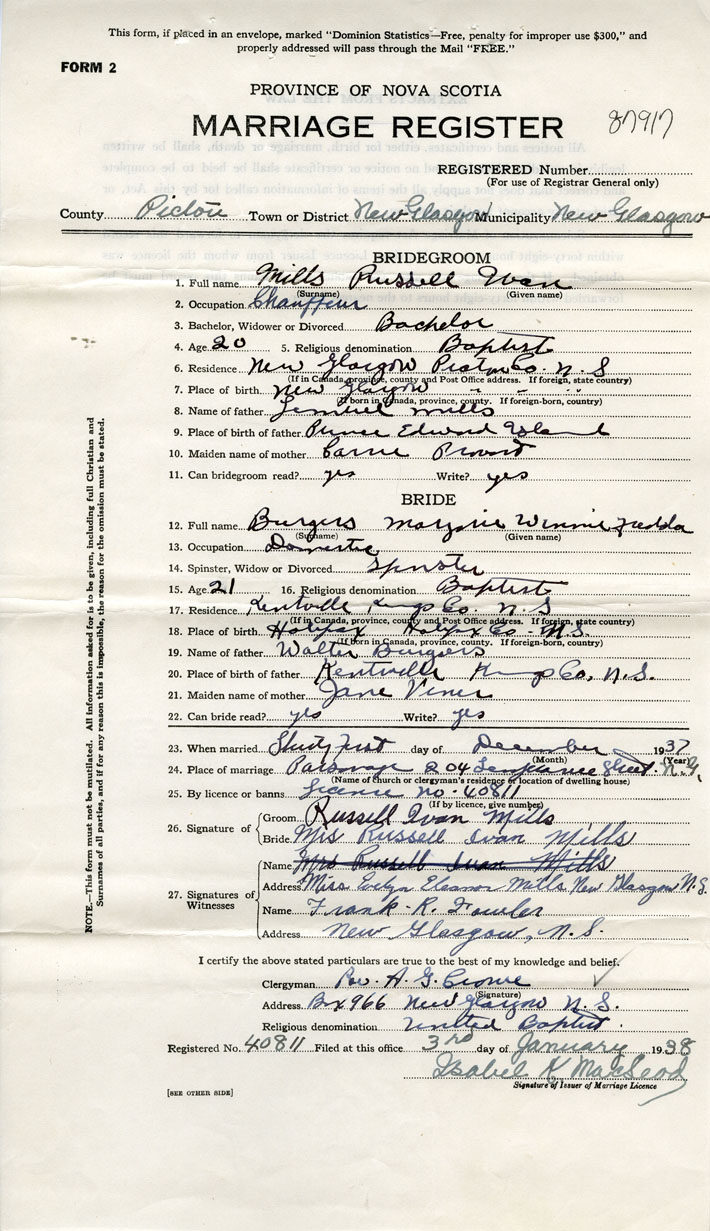 This form, if placed in an envelope, marked "Dominion Statistics—Free, penalty for improper use $300," and
properly addressed will pass through the Mail "FREE."
FORM 2
PROVINCE OF NOVA SCOTIA
MARRIAGE REGISTER 87917
REGISTERED Number
(For use of Registrar General only)
County Pictou Town or District New Glasgow Municipality New Glasgow
BRIDEGROOM
1. Full name Mills Russell Ivan
(Surname) (Given name)
2. Occupation Chauffeur
3. Bachelor, Widower or Divorced Bachelor
4. Age 20 5. Religious denomination Baptist
6. Residence New Glasgow Pictou Co. N. S
(If in Canada, province, county and Post Office address. If foreign, state country)
7. Place of birth New Glasgow
(If born in Canada, province, county. If foreign-born, country)
8. Name of father Lemuel Mills
9. Place of birth of father Prince Edward Island
10. Maiden name of mother Carrie
11. Can bridegroom read? yes Write? yes
BRIDE
12. Full name Burgers Marjorie Winnie
(Surname) (Given name)
13. Occupation Domestic
14. Spinster, Widow or Divorced Spinster
15. Age 21 16. Religious denomination Baptist
17. Residence Kentville Kings Co. N. S
(If in Canada, province, county and Post Office address. If foreign, state country)
18. Place of birth Halifax Halifax Co N.S.
(If born in Canada, province, county. If foreign-born, country)
19. Name of father Walter Burgers
20. Place of birth of father Kentville Kings Co, N.S.
21. Maiden name of mother Jane
22. Can bride read? yes Write? yes
23. When married Thirty First day of December 1937
(Month) (Year)
24. Place of marriage Parsonage 204 Temperance Street N.G.
(Name of church or clergyman's residence or location of dwelling house)
25. By licence or banns License no. 40811
(If by licence, give number)
26. Signature of
Groom Russell Ivan Mills
Bride Mrs Russell Ivan Mills
27. Signatures of Witnesses
Name Mrs Russell Ivan Mills
Address Miss Evelyn Eleanor Mills New Glasgow N.S.
Name Frank R. Fowler
Address New Glasgow, N.S.
I certify the above stated particulars are true to the best of my knowledge and belief.
Clergyman Rev. A. G. Crowe
(Signature)
Address Box 966 New Glasgow N.S.
Religious denomination United Baptist.
Registered No. 40811 Filed at this office 3rd day of January 1938
Isabel K MacLeod
Signature of Issuer of Marriage Licence
[SEE OTHER SIDE]
NOTE.—This form must not be mutilated. All information asked for is to be given, including full Christian and
Surnames of all parties, and if for any reason this is impossible, the reason for the omission must be stated.